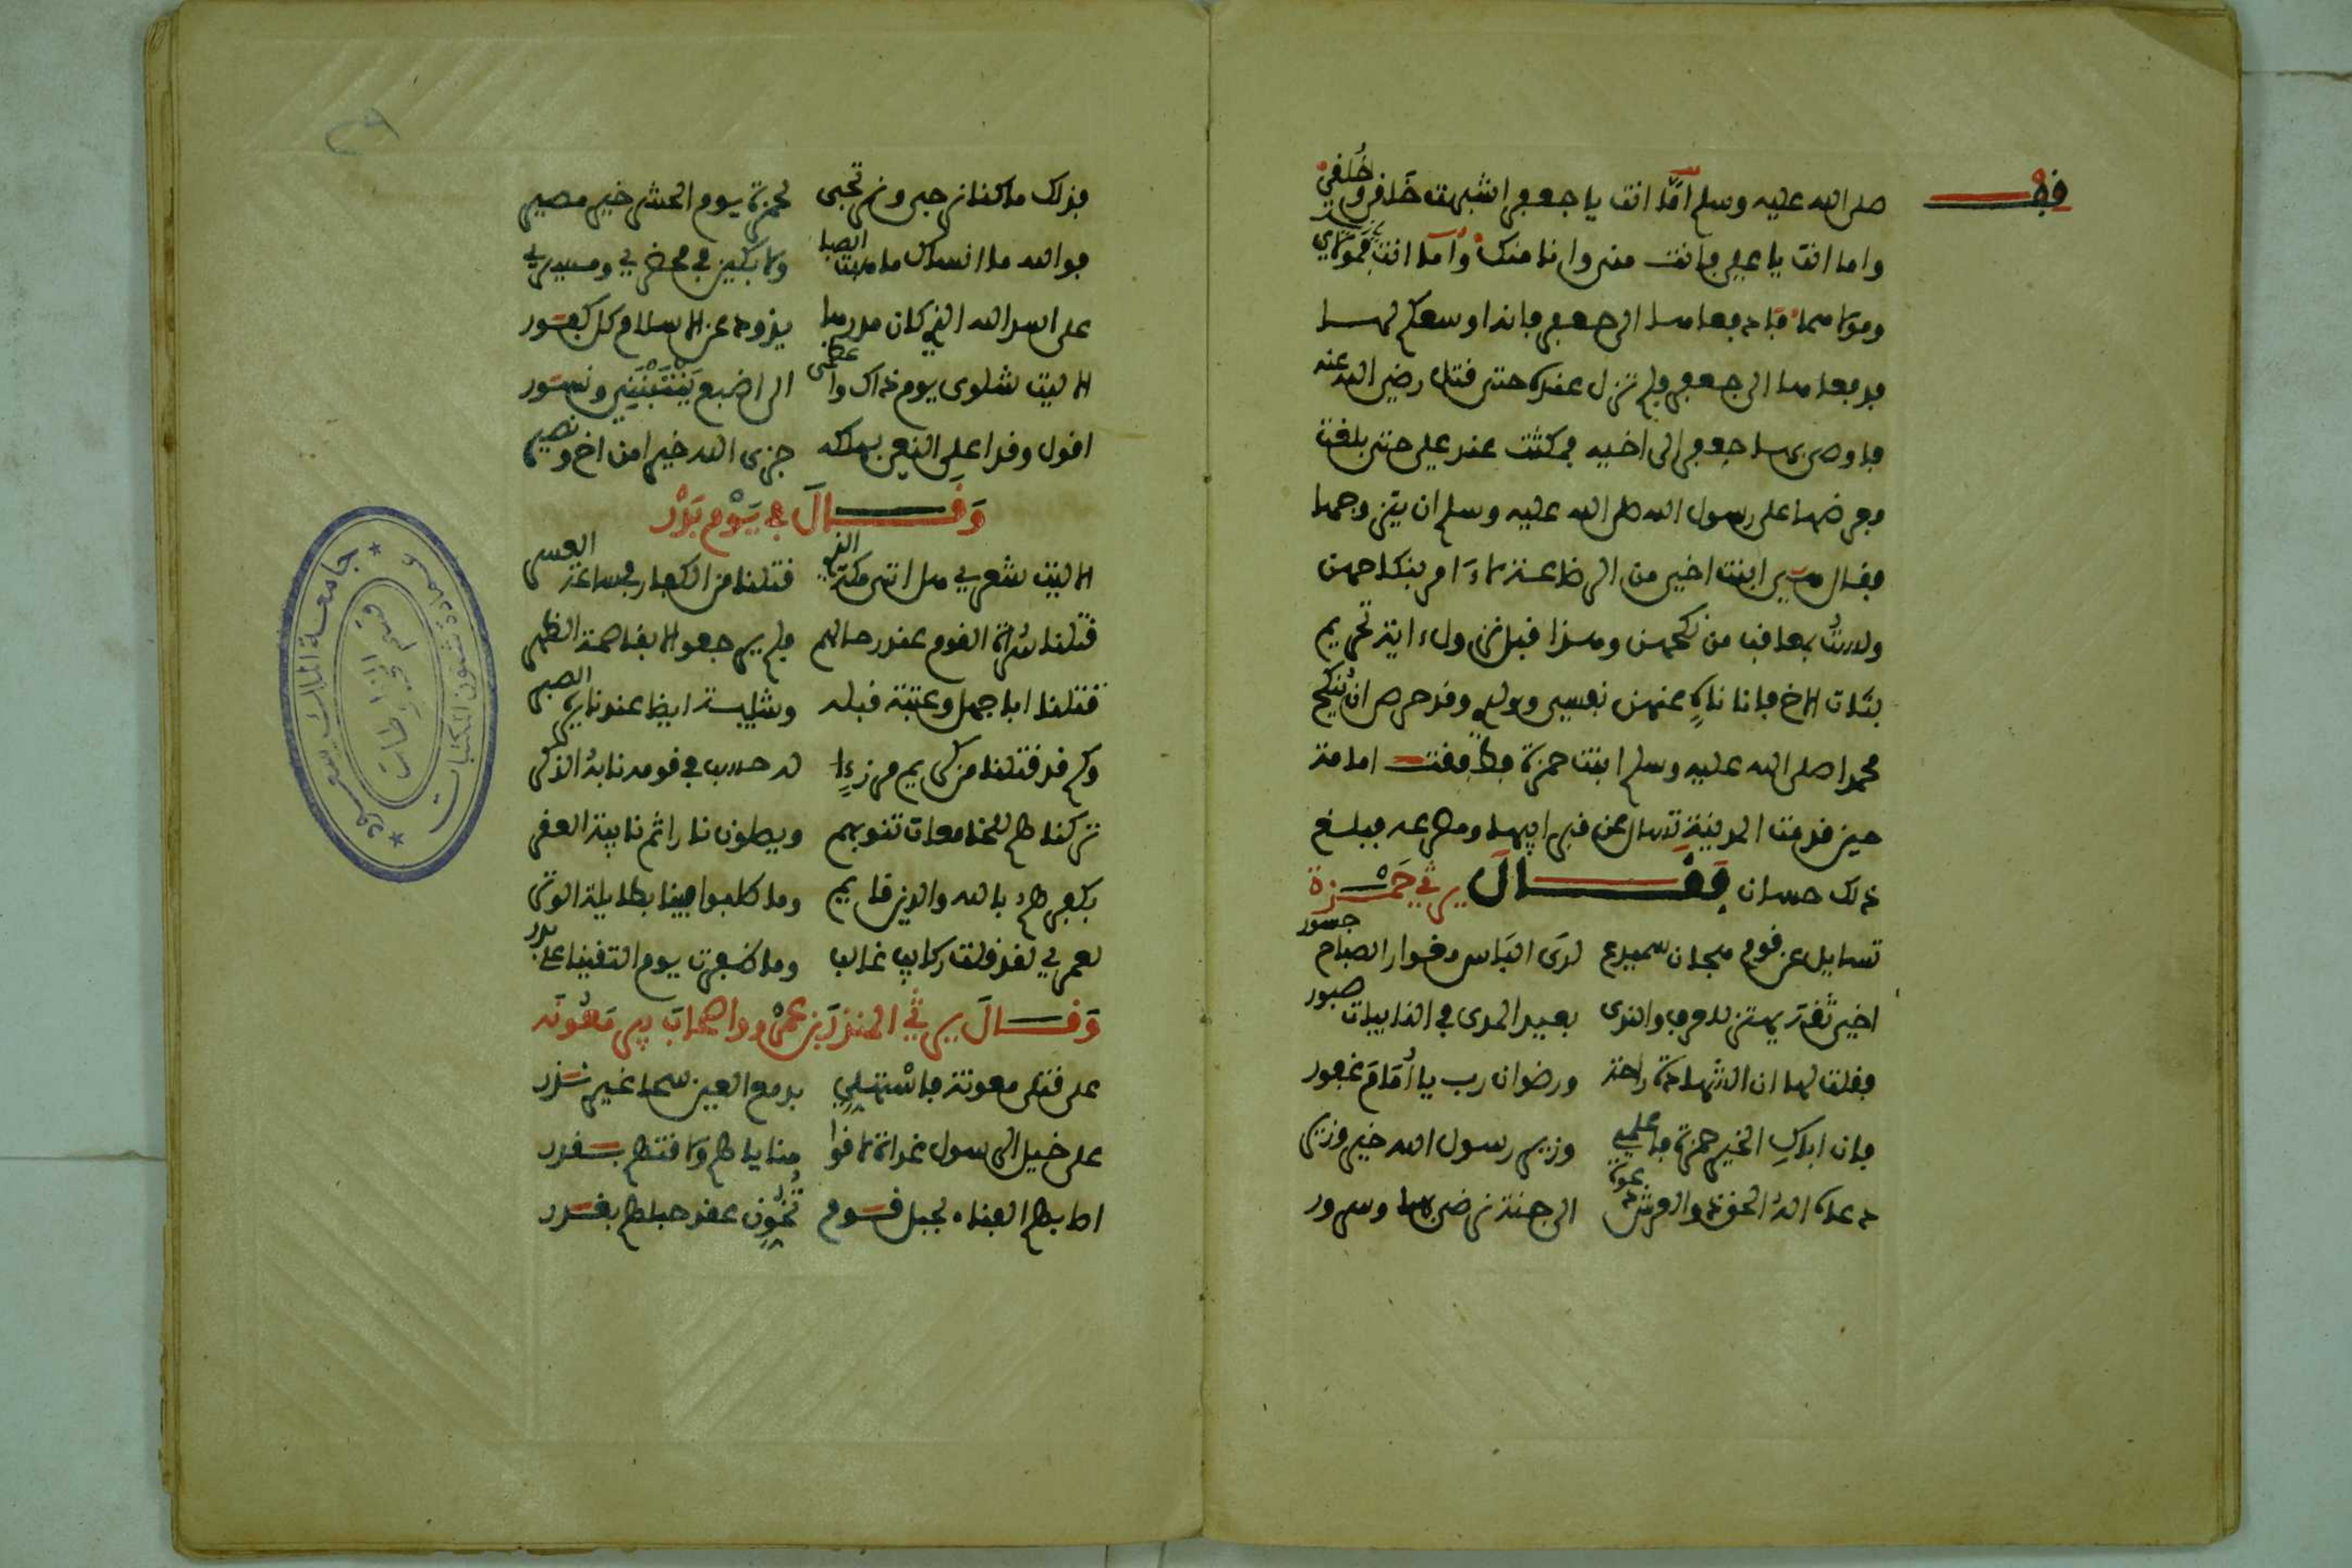 قف
صلى الله عليه وسلم أما انت يا جعفر اشبهت خَلقي وخُلقي
واما انت يا علي فانت مني وانا منك وأما انت فمولاي
ومولاهما فادفعاها الى جعفر فانه اوسعكم لها
فدفعاها الى جعفر فلم تزل عنده حتى قتل رضي الله عنه
فاوصى بها جعفر الى اخيه فمكثت عند علي حتى بلغت
فعرضها على رسول الله صلى الله عليه وسلم ان يتزوجها
فقال هي ابنت اخي من الرضاعة
محمدا صلى الله عليه وسلم ابنت حمزة فطفقت امامة
حين قدمت المدينة تسال عن قبر ابيها ومصرعه فبلغ
ذلك حسان فَقَالَ يرثي حَمْزة
تسايل عن قوم هجان سميدع لدى الباس مغوار الصباح جسور
اخي ثقة يهتز للعرف والندى بعيد المدى في النايبات صبور
فقلت لها ان الشهادة راحة ورضوان رب يا أُمَامَ غفور
فان اباكِ الخير حمزة فاعلمي وزير رسول الله خير وزير
دعاه اله الحق ذو العرش دعوة الى جنة يرضى بها وسرور
فذلك ما كنا نرجي ونرتجي لحمزة يوم الحشر خير مصير
فوالله ما انساك ما هبت الصبا ولابكين في محضري ومسيري
على اسد الله الذي كان مدرها يذود عن الاسلام كل كفور
الا ليت شلوي يوم ذاك واعظمي الى اضبع يَنْتَبْنَنِي ونسور
اقول وقد اعلى النعي بهلكه جزى الله خيرا من اخ ونصير
وَقَالَ في يَوْم بَدْر
الا ليت شعري هل اتى مكة الذي قتلنا من الكفار في ساعة العسر
قتلنا سُراة القوم عند رحالهم فلم يرجعوا الا بقاصمة الظهر
قتلنا ابا جهل وعتبة قبله وشيبة ايضا عند نايرة الصبر
وكم قد قتلنا من كريم مرزءٍا له حسب في قومه نابهُ الذكر
تركناهم للخامعات تنوبهم ويصلون نارا ثم نايية القعر
بكفرهم بالله والدين قايم وما طلبوا فينا بطايلة الوتر
لعمري لقد قلت ركايب غالب وما ظفرت يوم التقينا على بدر
وَقَالَ يرثي المنذر بن عمرو واصحاب بير مَعُونَه
على قتلى معونة فاستهلي بدمع العين سحا غير نزر
على خيل الرسول غداة لاقوا مناياهم ولاقتهم بقدر
اصابهم الفناء لحبل قوم تُخُوِّن عقد حبلهم بغدر
جامعة الملك سعود
عمادة شئون المكتبات
قسم المخطوطات